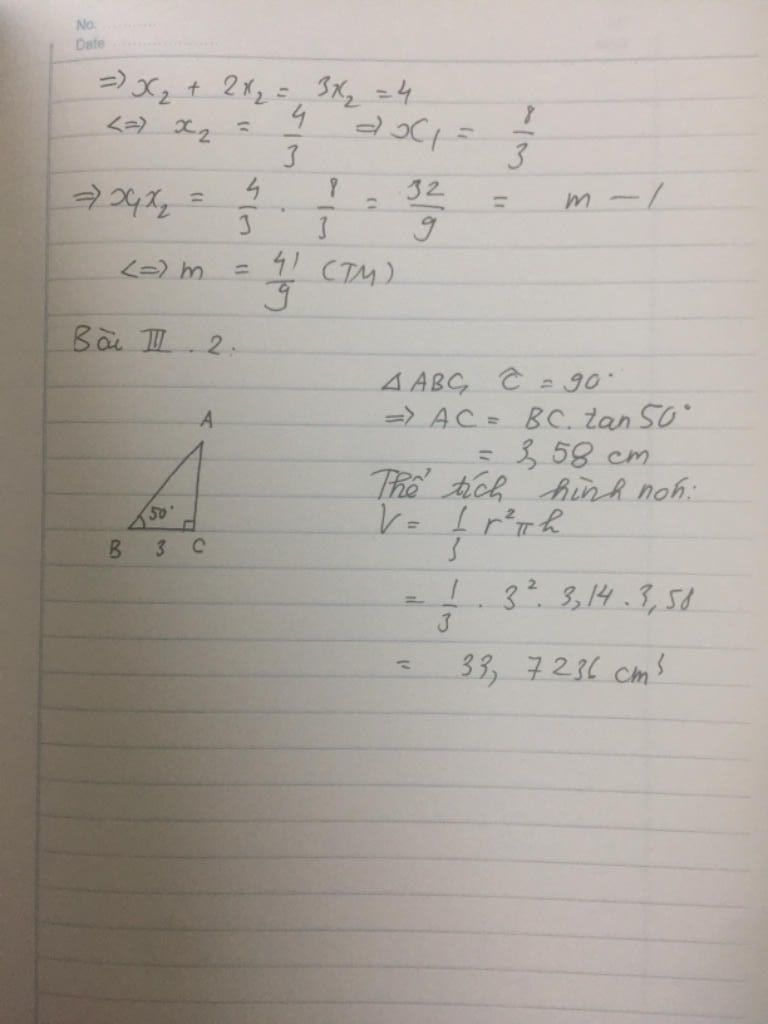 No. ............
Date ......................
=> x₂ + 2x₂ = 3x₂ = 4
<=> x₂ = 4/3 => x₁ = 8/3
=> x₁x₂ = 4/3 . 8/3 = 32/9 = m - 1
<=> m = 41/9 (TM)
Bài III . 2 .
Δ ABC, Ĉ = 90°
=> AC = BC. tan 50°
= 3,58 cm
Thể tích hình nón:
V = 1/3 r²πh
= 1/3 . 3² . 3,14 . 3,58
= 33, 7236 cm³
A
50°
B 3 C